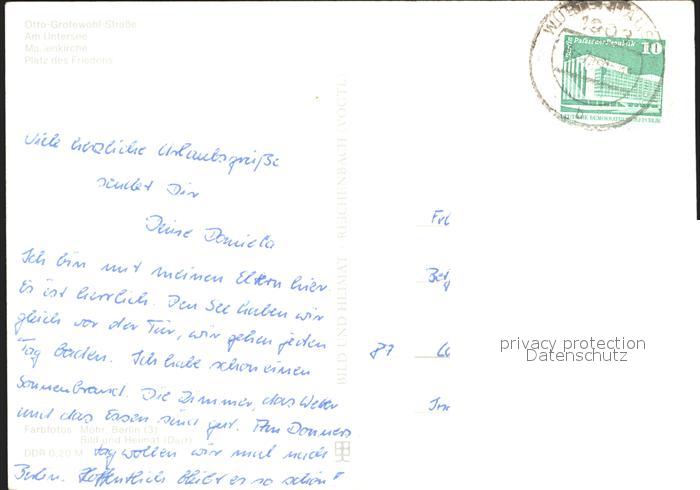 Otto-Grotewohl-Straße
Am Untersee
Platz des Friedens
10
Berlin Palast der Republik
DEUTSCHE DEMOKRATISCHE REPUBLIK
Viele herzliche Urlaubsgrüße
sendet Dir
Deine Daniela
Ich bin mit meinen Eltern hier.
Es ist herrlich. Den See haben wir
gleich vor der Tür, wir gehen jeden
Tag baden. Ich habe schon einen
Sonnenbrand. Die Zimmer, das Wetter
und das Essen sind gut. Am Donners
tag wollen wir mal nach
Berlin. Hoffentlich bleibt es so schön!
Farbfotos: Mohr, Berlin (3)
Bild und Heimat (Darr)
DDR 0,20 M
BILD UND HEIMAT REICHENBACH (VOGTL)
privacy protection
Datenschutz